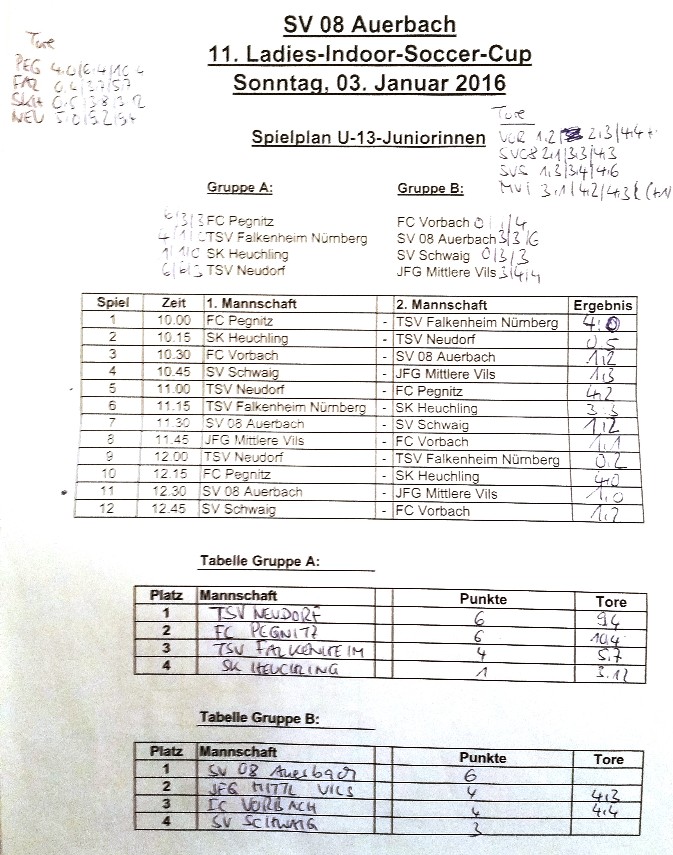 SV 08 Auerbach
11. Ladies-Indoor-Soccer-Cup
Sonntag, 03. Januar 2016
Tore
PEG 4:0/6:4/10:4
FAL 0:4/3:7/5:7
SKH 0:5/3:8/3:12
NEU 5:0/9:2/9:4
Spielplan U-13-Juniorinnen
Tore
VOR 1:2/ 2:3/4:4
SVC8 2:1/3:3/4:3
SVS 1:3/3:4/4:6
MVi 3:1/4:2/4:3
Gruppe A: Gruppe B:
6/3/3 FC Pegnitz FC Vorbach 0/1/4
4/1/0 TSV Falkenheim Nürnberg SV 08 Auerbach 3/3/6
1/1/0 SK Heuchling SV Schwaig 0/3/3
6/6/3 TSV Neudorf JFG Mittlere Vils 3/4/4
Spiel Zeit 1. Mannschaft 2. Mannschaft Ergebnis
1 10.00 FC Pegnitz - TSV Falkenheim Nürnberg 4:0
2 10.15 SK Heuchling - TSV Neudorf 0:5
3 10.30 FC Vorbach - SV 08 Auerbach 1:2
4 10.45 SV Schwaig - JFG Mittlere Vils 1:3
5 11.00 TSV Neudorf - FC Pegnitz 4:2
6 11.15 TSV Falkenheim Nürnberg - SK Heuchling 3:3
7 11.30 SV 08 Auerbach - SV Schwaig 1:2
8 11.45 JFG Mittlere Vils - FC Vorbach 1:1
9 12.00 TSV Neudorf - TSV Falkenheim Nürnberg 0:2
10 12.15 FC Pegnitz - SK Heuchling 4:0
11 12.30 SV 08 Auerbach - JFG Mittlere Vils 1:0
12 12.45 SV Schwaig - FC Vorbach 1:2
Tabelle Gruppe A:
Platz Mannschaft Punkte Tore
1 TSV NEUDORF 6 9:4
2 FC PEGNITZ 6 10:4
3 TSV FALKENHEIM 4 5:7
4 SK HEUCHLING 1 3:12
Tabelle Gruppe B:
Platz Mannschaft Punkte Tore
1 SV 08 Auerbach 6
2 JFG MITTL VILS 4 4:3
3 FC VORBACH 4 4:4
4 SV SCHWAIG 3